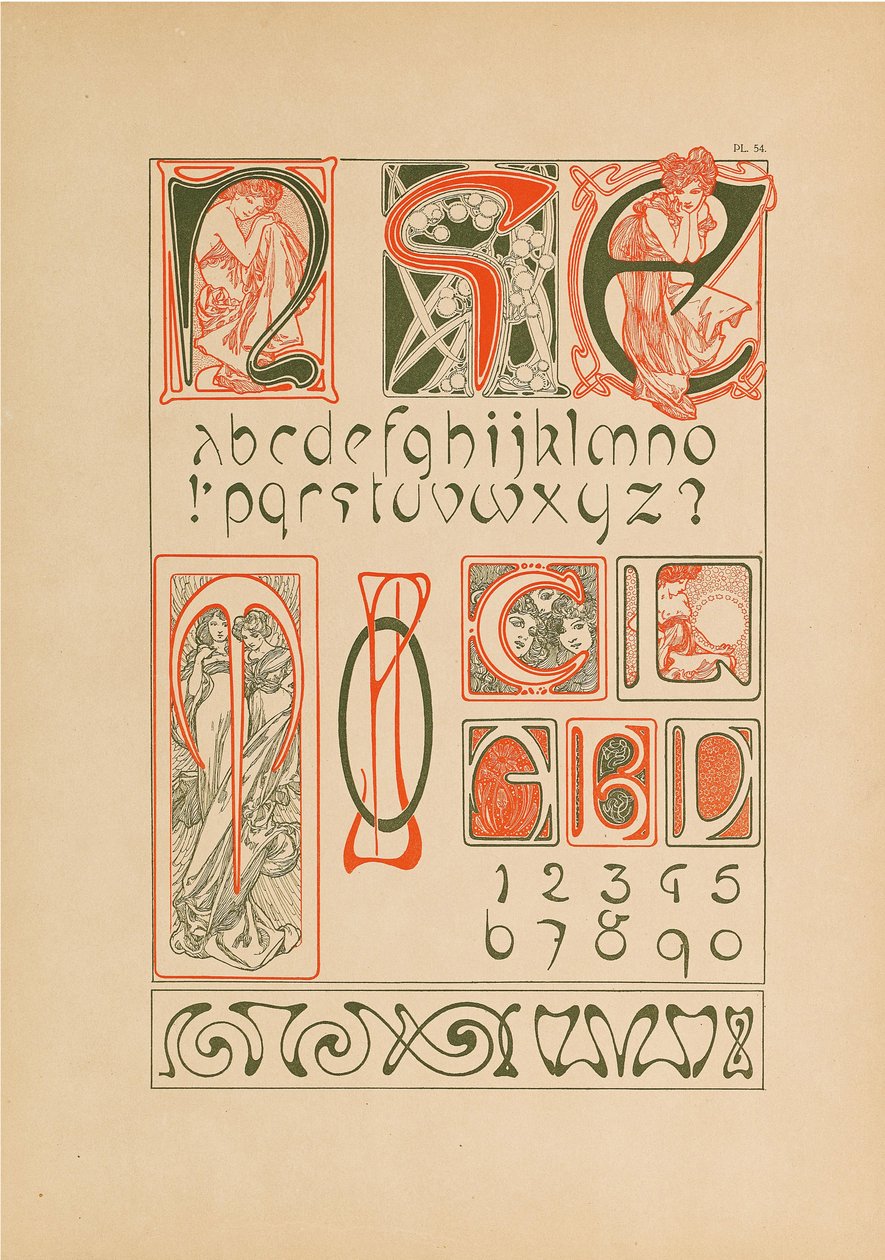 PL. 54.
n s e
abcdefghijklmno
!'pqrstuvwxyz?
M O C L
E B D
1 2 3 4 5
6 7 8 9 0